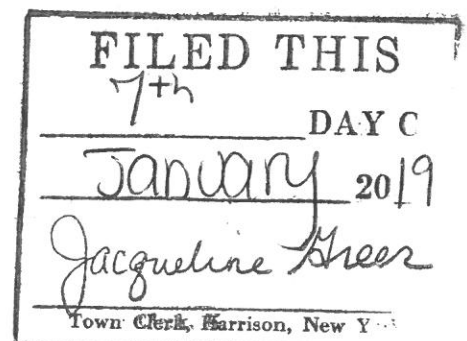 FILED THIS
7th
DAY C
January 2019
Jacqueline Greer
Town Clerk, Harrison, New Y